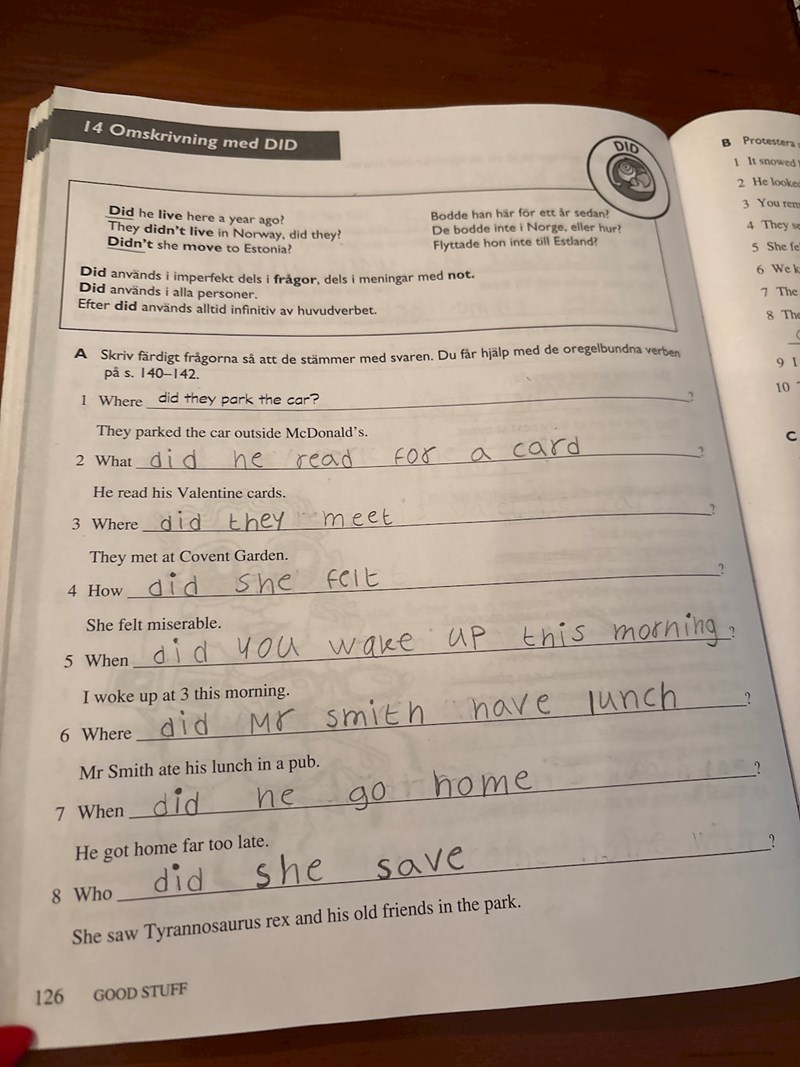 14 Omskrivning med DID
DID
Did he live here a year ago?
They didn't live in Norway, did they?
Didn't she move to Estonia?
Bodde han här för ett år sedan?
De bodde inte i Norge, eller hur?
Flyttade hon inte till Estland?
Did används i imperfekt dels i frågor, dels i meningar med not.
Did används i alla personer.
Efter did används alltid infinitiv av huvudverbet.
A Skriv färdigt frågorna så att de stämmer med svaren. Du får hjälp med de oregelbundna verben
på s. 140–142.
1 Where did they park the car? ?
They parked the car outside McDonald's.
2 What did he read for a card ?
He read his Valentine cards.
3 Where did they meet ?
They met at Covent Garden.
4 How did she felt ?
She felt miserable.
5 When did you wake up this morning ?
I woke up at 3 this morning.
6 Where did Mr smith have lunch ?
Mr Smith ate his lunch in a pub.
7 When did he go home ?
He got home far too late.
8 Who did she save ?
She saw Tyrannosaurus rex and his old friends in the park.
126 GOOD STUFF
B Protestera
1 It snowed
2 He looked
3 You
4 They
5 She
6 We
7 The
8
9 I
10
C